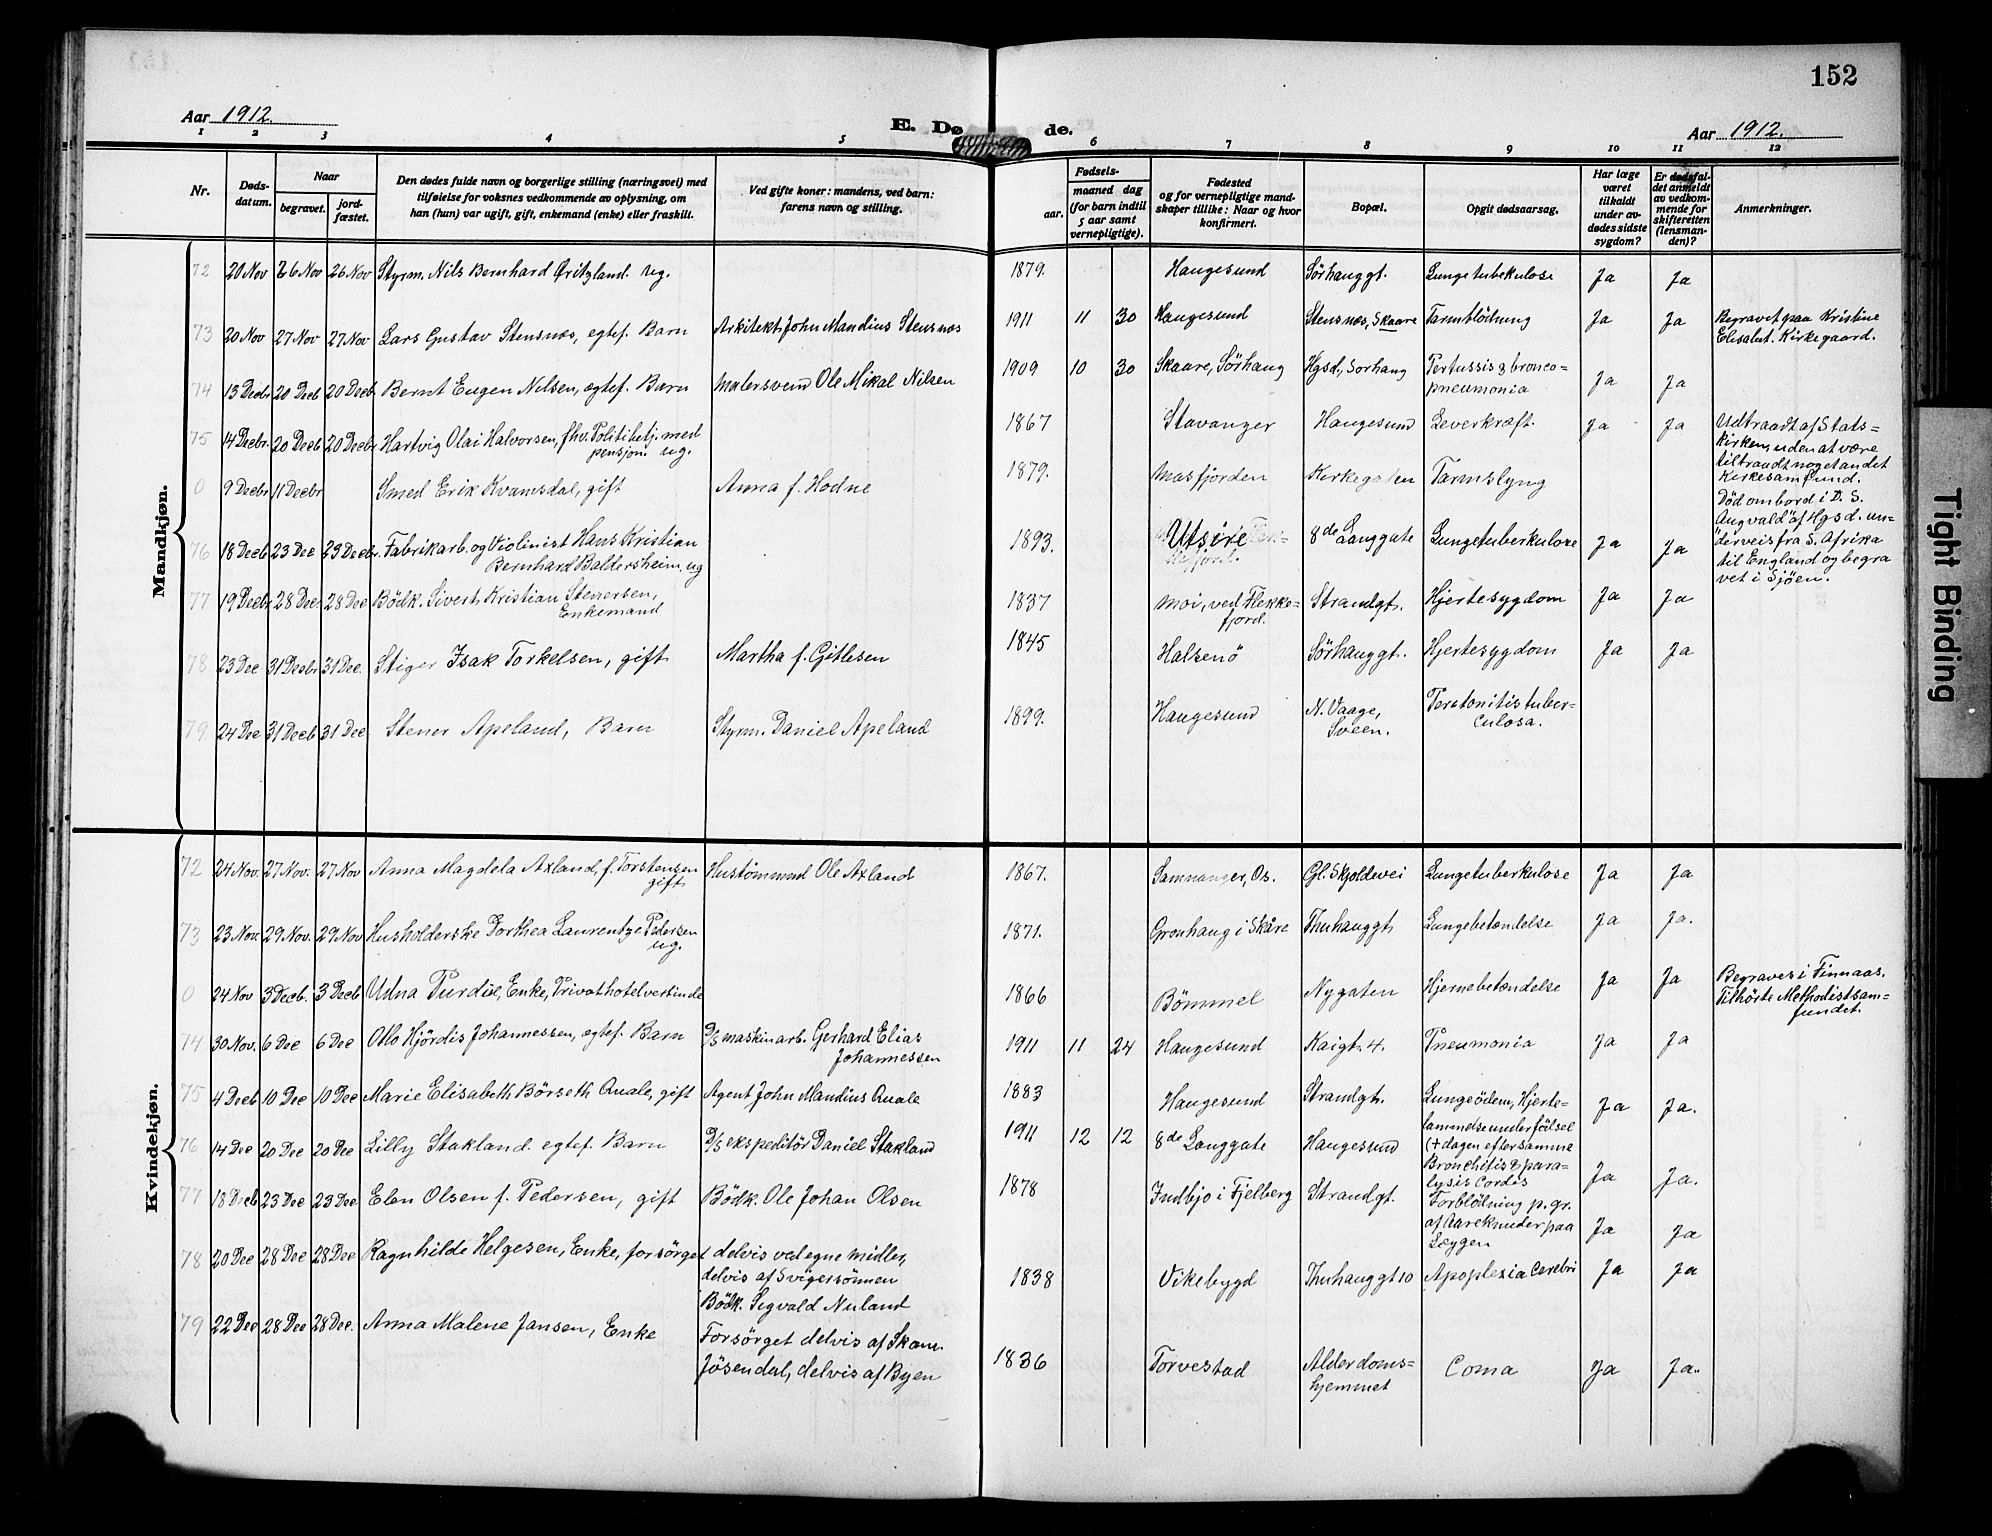 152
Aar 1912.
E. Døde.
Aar 1912.
1 2 3 4 5 6 7 8 9 10 11 12
Nr.
Døds-
datum.
Naar
begravet.
jord-
fæstet.
Den dødes fulde navn og borgerlige stilling (næringsvei) med
tilføielse for voksnes vedkommende av oplysning, om
han (hun) var ugift, gift, enkemand (enke) eller fraskilt.
Ved gifte koner: mandens, ved barn:
farens navn og stilling.
Fødsels-
aar.
maaned dag
(for barn indtil
5 aar samt
vernepligtige).
Fødested
og for vernepligtige mand-
skaper tillike: Naar og hvor
konfirmert.
Bopæl.
Opgit dødsaarsag.
Har læge
været
tilkaldt
under av-
dødes sidste
sygdom?
Er dødsfal-
det anmeldt
av vedkom-
mende for
skifteretten
(lensman-
den)?
Anmerkninger.
Mandkjøn.
72 20 Nov 26 Nov 26 Nov Styrm. Nils Bernhard Øritzland. ug. 1879. Haugesund Sörhauggt. Lungetubekulose Ja Ja
73 20 Nov 27 Nov 27 Nov Lars Gustav Stensnæs, egtef. Barn Arkitekt John Mandius Stensnæs 1911 11 30 Haugesund Stensnæs, Skaare Tarmblödning Ja Ja Begravet paa Kristine
Elisabet. Kirkegaard.
74 13 Decbr 20 Decb 20 Decbr Bernt Eugen Nilsen, egtef. Barn Malersvend Ole Mikal Nilsen 1909 10 30 Skaare, Sørhaug Hgsd., Sorhaug Pertussis & bronco-
pneumonia Ja Ja
75 14 Decbr. 20 Decb 20 Decbr Hartvig Olai Halvorsen, fhv. Politibetj. med
pensjon. ug. 1867 Stavanger Haugesund Leverkræft. Ja Ja Udtraadt af Stats-
kirken, uden at være
tiltraadt noget andet
Kirkesamfund.
0 9 Decbr 11 Decbr Smed Erik Kvamsdal, gift Anna f. Hodne 1879. Masfjorden Kirkegaten Tarmslyng
Död ombord i D. S.
"Augvald" af Hgsd. un-
derveis fra S. Afrika
til England og begra
vet i Sjøen.
76 18 Decb 23 Dec 23 Decbr. Fabrikarb. og Violinist Hans Kristian
Bernhard Baldersheim, ug 1893. Utsire 8de Langgate Lungetuberkulose Ja Ja
77 19 Decbr 28 Dec 28 Dec Bödk. Sivert Kristian Stenersen,
Enkemand 1837 Moi, ved Flekke-
fjord. Strandgt. Hjertesygdom Ja Ja
78 23 Dec 31 Decbr 31 Dec. Stiger Isak Torkelsen, gift Martha f. Gitlesen 1845 Halsenö Sörhauggt. Hjertesygdom Ja Ja
79 24 Dec 31 Decb 31 Dec Stener Apeland, Barn Styrm. Daniel Apeland 1899. Haugesund N. Vaage,
Sveen. Peretonitis tuber-
culosa.
Kvindekjøn.
72 24 Nov. 27 Nov. 27 Nov Anna Magdela Axland, f. Torstensen
gift Hustömmand Ole Axland 1867. Samnanger, Os. Gl. Skjoldevei Lungetuberkulose Ja Ja
73 23 Nov. 29 Nov. 29 Nov Husholderske Dorthea Laurentze Pedersen
ug. 1871. Gronhaug i Skåre Thuhauggt Lungebetændelse Ja Ja.
0 24 Nov 3 Decb. 3 Decb Udna Turdie, Enke, Privathotelvertinde 1866 Bömmel Nygaten Hjernebetændelse Ja Ja Begraves i Finnaas.
Tilhörte Methodistsam-
fundet.
74 30 Nov. 6 Dec 6 Dec Oto Hjördis Johannessen, egtef. Barn D/S maskinarb. Gerhard Elias
Johannessen 1911 11 24 Haugesund Kaigt. 4. Pneumonia Ja Ja
75 4 Decb 10 Dec 10 Dec Marie Elisabeth Börseth Quale, gift Agent John Mandius Quale 1883 Haugesund Strandgt. Lungeödem, Hjerte-
lammelse under födsel
(+ dagen efter samme Ja Ja.
76 14 Dec 20 Dec 20 Dec Lilly Stakland. egtef. Barn D/S ekspeditör Daniel Stakland 1911 12 12 8de Langgate Haugesund
Bronchitis & para-
lysis Cordis Ja Ja.
77 18 Decb 23 Dec 23 Dec Elen Olsen f. Pedersen, gift Bödk. Ole Johan Olsen 1878 Indbjo i Fjelberg Strandgt.
Forblödning p. gr.
af Aareknuder paa
Læggen Ja Ja
78 20 Dec 28 Dec 28 Dec Ragnhilde Helgesen, Enke, forsörget delvis ved egne midler,
delvis af Svigersönnen
Bödk. Sigvald Nuland 1838 Vikebygd Thuhauggt 10 Apoplexia Cerebri Ja Ja
79 22 Dec 28 Dec 28 Dec. Anna Malene Jansen, Enke Forsörget delvis af Skom.
Jösendal, delvis af Byen 1836 Torvestad Alderdoms-
hjemmet Coma Ja Ja.
Tight Binding